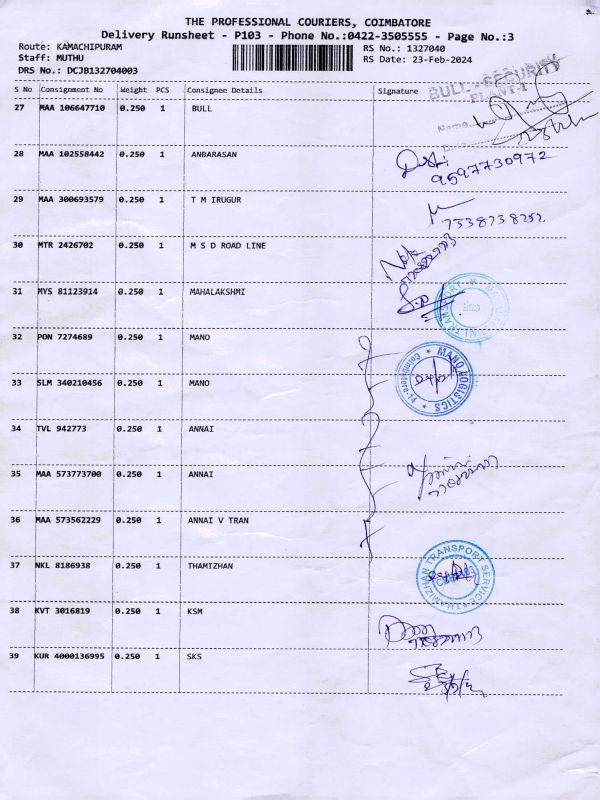 THE PROFESSIONAL COURIERS, COIMBATORE
Delivery Runsheet - P103 - Phone No.:0422-3505555 - Page No.:3
Route: KAMACHIPURAM RS No.: 1327040
Staff: MUTHU RS Date: 23-Feb-2024
DRS No.: DCJB132704003
S No Consignment No Weight PCS Consignee Details Signature
BULL - SECURITY
PLANT-1
27 MAA 106647710 0.250 1 BULL
Name
28 MAA 102558442 0.250 1 ANBARASAN
9597730972
29 MAA 300693579 0.250 1 T M IRUGUR
7338738252
30 MTR 2426702 0.250 1 M S D ROAD LINE
31 MYS 81123914 0.250 1 MAHALAKSHMI
32 PON 7274689 0.250 1 MANO
MANO LOGISTICS
Coimbatore-14
33 SLM 340210456 0.250 1 MANO
34 TVL 942773 0.250 1 ANNAI
35 MAA 573773700 0.250 1 ANNAI
36 MAA 573562229 0.250 1 ANNAI V TRAN
37 NKL 8186938 0.250 1 THAMIZHAN
THAMIZHAN TRANSPORT SERVICE
38 KVT 3016819 0.250 1 KSM
39 KUR 4000136995 0.250 1 SKS